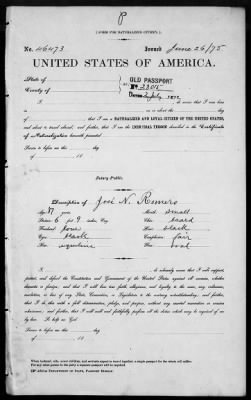 P
[FORM FOR NATURALIZED CITIZEN.]
No. 46473 Issued June 26/75
UNITED STATES OF AMERICA.
State of
County of
OLD PASSPORT
No. 23015
Dated 2 July 1872
I, do swear that I was born
on or about the day
of that I am a NATURALIZED AND LOYAL CITIZEN OF THE UNITED STATES,
and about to travel abroad; and further, that I am the IDENTICAL PERSON described in the Certificate
of Naturalization herewith presented.
Sworn to before me, this day
of 18
Notary Public.
Description of José N. Romero
Age: 47 years Mouth: small
Stature: 5 feet 9 inches, Eng. Chin: beard
Forehead: low Hair: black
Eyes: black Complexion: fair
Nose: aquiline Face: oval
I, do solemnly swear that I will support,
protect, and defend the Constitution and Government of the United States against all enemies, whether
domestic or foreign; and that I will bear true faith, allegiance, and loyalty to the same, any ordinance,
resolution, or law of any State, Convention, or Legislature to the contrary notwithstanding; and further,
that I do this with a full determination, pledge, and purpose, without any mental reservation or evasion
whatsoever; and further, that I will well and faithfully perform all the duties which may be required of me
by law: So help me God.
Sworn to before me, this day
of 18
When husband, wife, minor children, and servants expect to travel together, a single passport for the whole will suffice.
For any other person in the party a separate passport will be required.
Address Department of State, Passport Bureau.